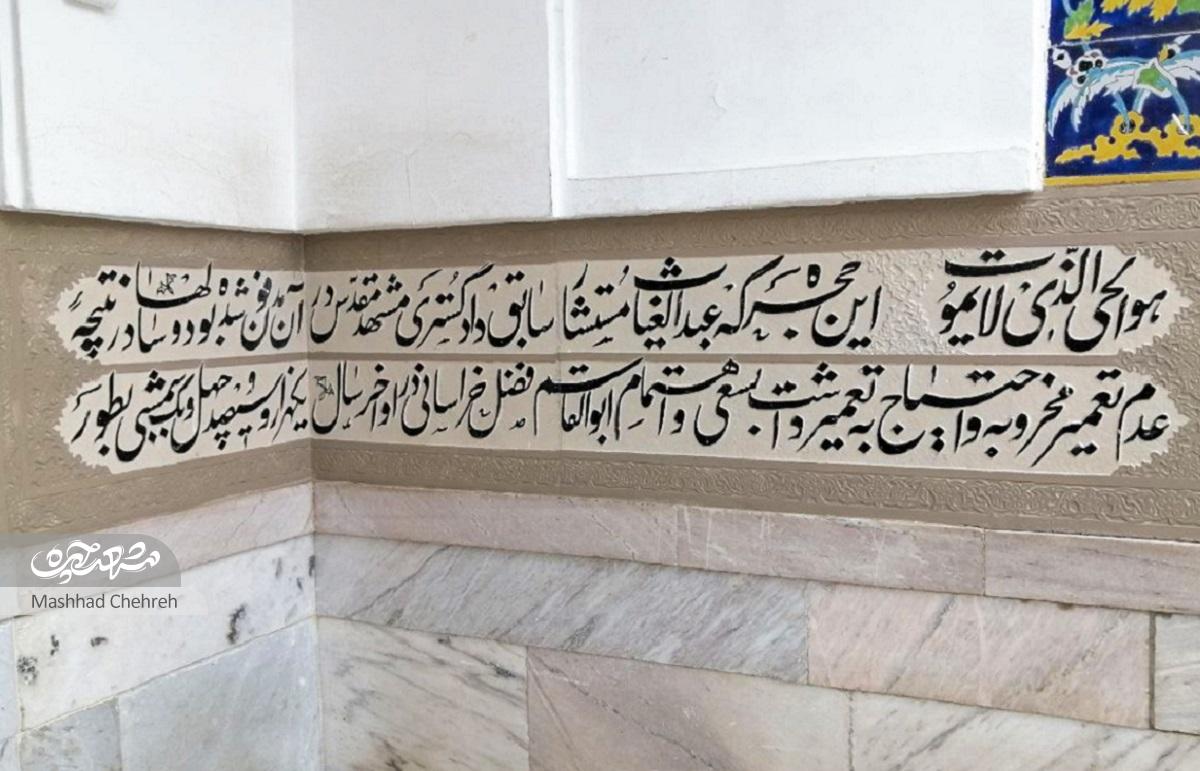 هو الحی الذی لایموت این حجره که عبدالغیاث مستشار سابق دادگستری مشهد مقدس در آن مدفون شده بود و سالها در نتیجه
عدم تعمیر مخروبه و احتیاج به تعمیر داشت بسعی و اهتمام ابوالقاسم فضل خراسانی در اواخر سال یکهزار و سیصد و چهل و یک شمسی بطور
مشهدچهره
Mashhad Chehreh